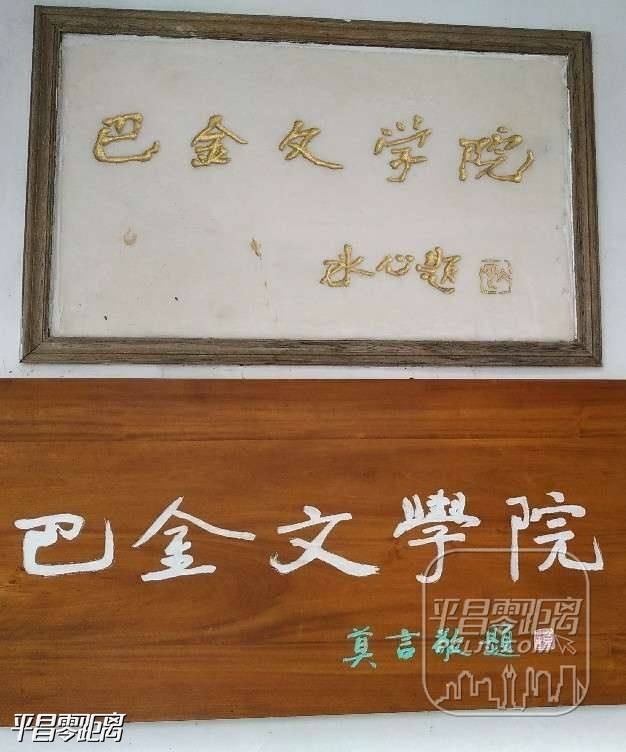 巴金文学院
冰心题
巴金文學院
莫言敬题
平昌零距离
平昌零距离